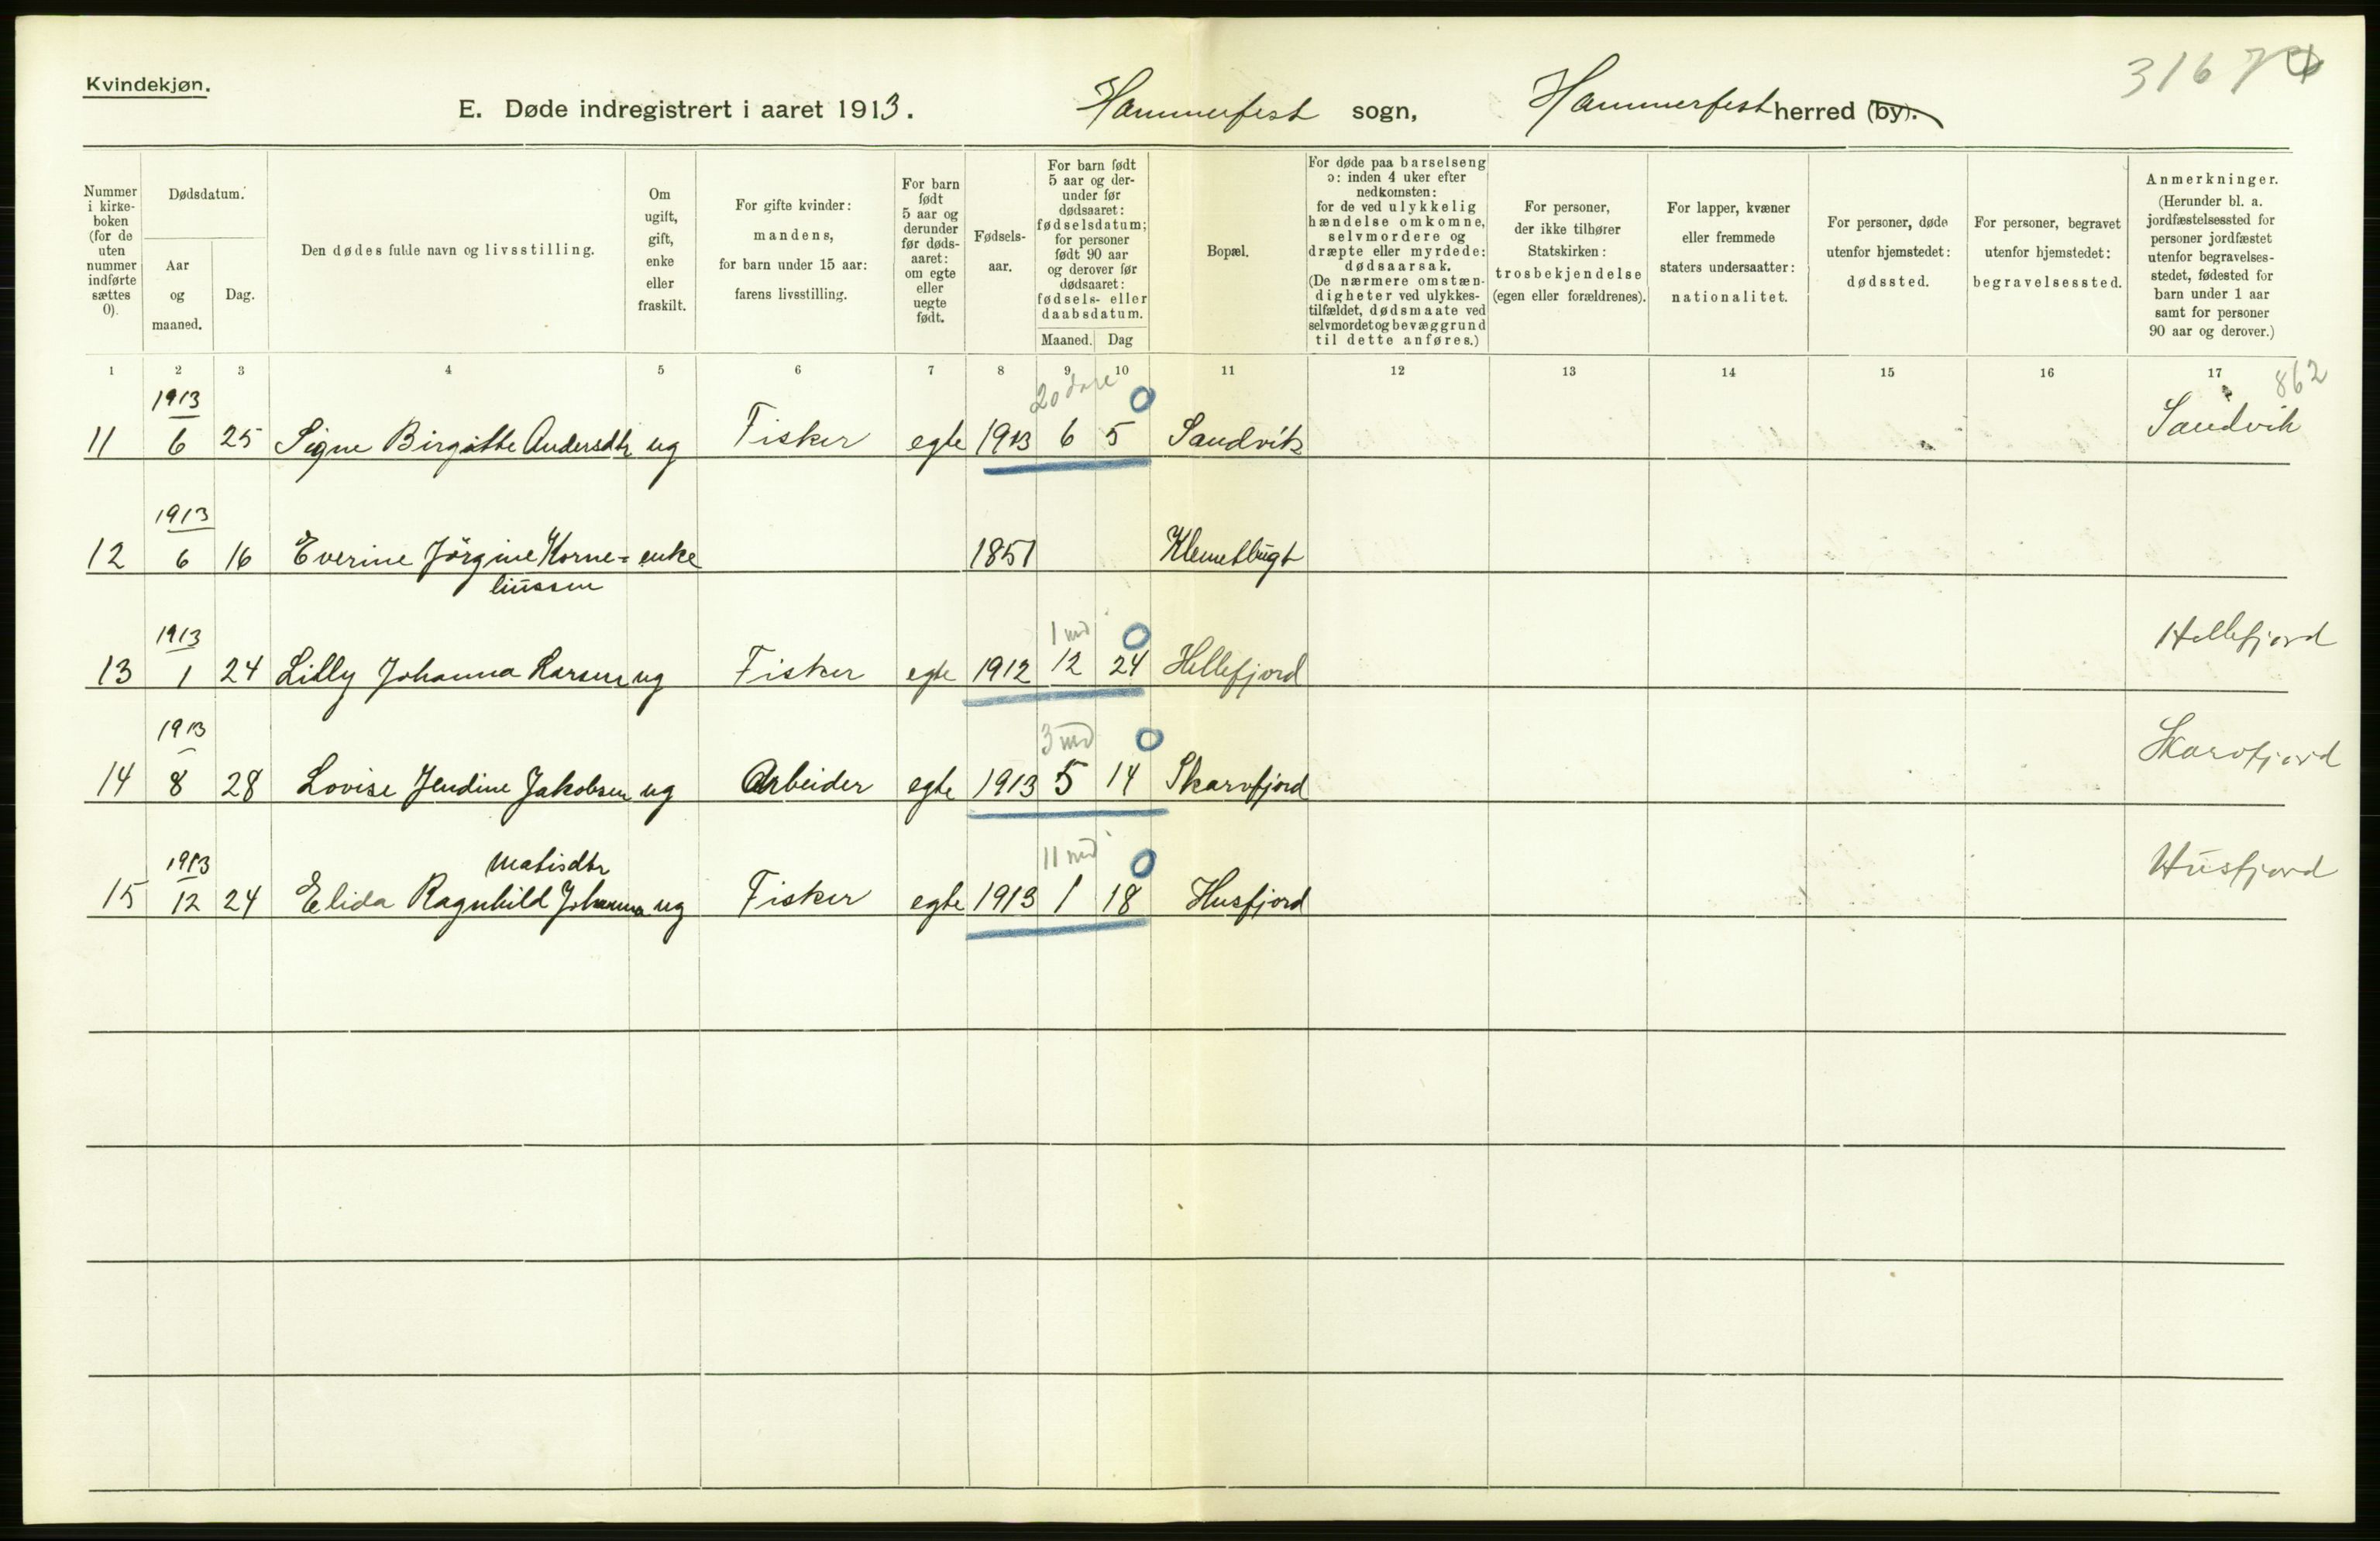 Kvindekjøn.
3167
E. Døde indregistrert i aaret 1913. Hammerfest sogn, Hammerfest herred (by).
Nummer i kirke-boken (for de uten nummer indførte sættes 0).
Dødsdatum.
Aar og maaned.
Dag.
Den dødes fulde navn og livsstilling.
Om ugift, gift, enke eller fraskilt.
For gifte kvinder: mandens, for barn under 15 aar: farens livsstilling.
For barn født 5 aar og derunder før døds-aaret: om egte eller uegte født.
Fødsels-aar.
For barn født 5 aar og der-under før dødsaaret: fødselsdatum; for personer født 90 aar og derover før dødsaaret: fødsels- eller daabsdatum.
Maaned. Dag
Bopæl.
For døde paa barselseng ɔ: inden 4 uker efter nedkomsten: for de ved ulykkelig hændelse omkomne, selvmordere og dræpte eller myrdede: dødsaarsak. (De nærmere omstæn-digheter ved ulykkes-tilfældet, dødsmaate ved selvmordet og bevæggrund til dette anføres.)
For personer, der ikke tilhører Statskirken: trosbekjendelse (egen eller forældrenes).
For lapper, kvæner eller fremmede staters undersaatter: nationalitet.
For personer, døde utenfor hjemstedet: dødssted.
For personer, begravet utenfor hjemstedet: begravelsessted.
Anmerkninger. (Herunder bl. a. jordfæstelsessted for personer jordfæstet utenfor begravelses-stedet, fødested for barn under 1 aar samt for personer 90 aar og derover.)
1 2 3 4 5 6 7 8 9 10 11 12 13 14 15 16 17
862
1913 20 dage 0
11 6 25 Signe Birgitte Andersdtr ug Fisker egte 1913 6 5 Sandvik Sandvik
1913
12 6 16 Everine Jörgine Korne= enke 1851 Klemetbugt
liussen
1913 1 md 0
13 1 24 Lilly Johanna Larsen ug Fisker egte 1912 12 24 Hellefjord Hellefjord
1913 3 md 0
14 8 28 Lovise Jendine Jakobsen ug Arbeider egte 1913 5 14 Skarvfjord Skarvfjord
1913 Matisdtr 11 md 0
15 12 24 Elida Ragnhild Johanna ug Fisker egte 1913 1 18 Husfjord Husfjord